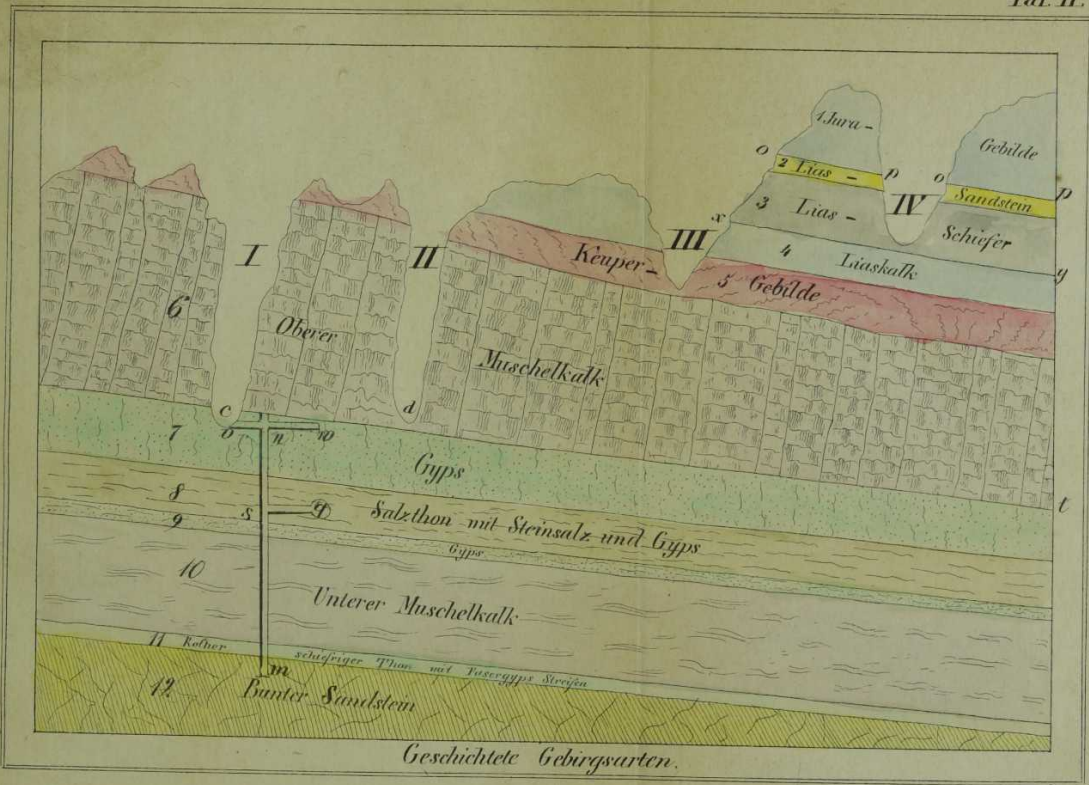 Taf. II.
1 Jura -
Gebilde
o 2 Lias - p
o Sandstein p
x 3 Lias - IV Schiefer
I II III
4 Liaskalk y
Keuper -
5 Gebilde
6 Oberer
Muschelkalk
c d
7 o n w
Gyps
t
8 s q Salzthon mit Steinsalz und Gyps
9 Gyps
10 Unterer Muschelkalk
11 Rother schiefriger Thon mit Fasergyps Streifen
m
12. Bunter Sandstein
Geschichtete Gebirgsarten.